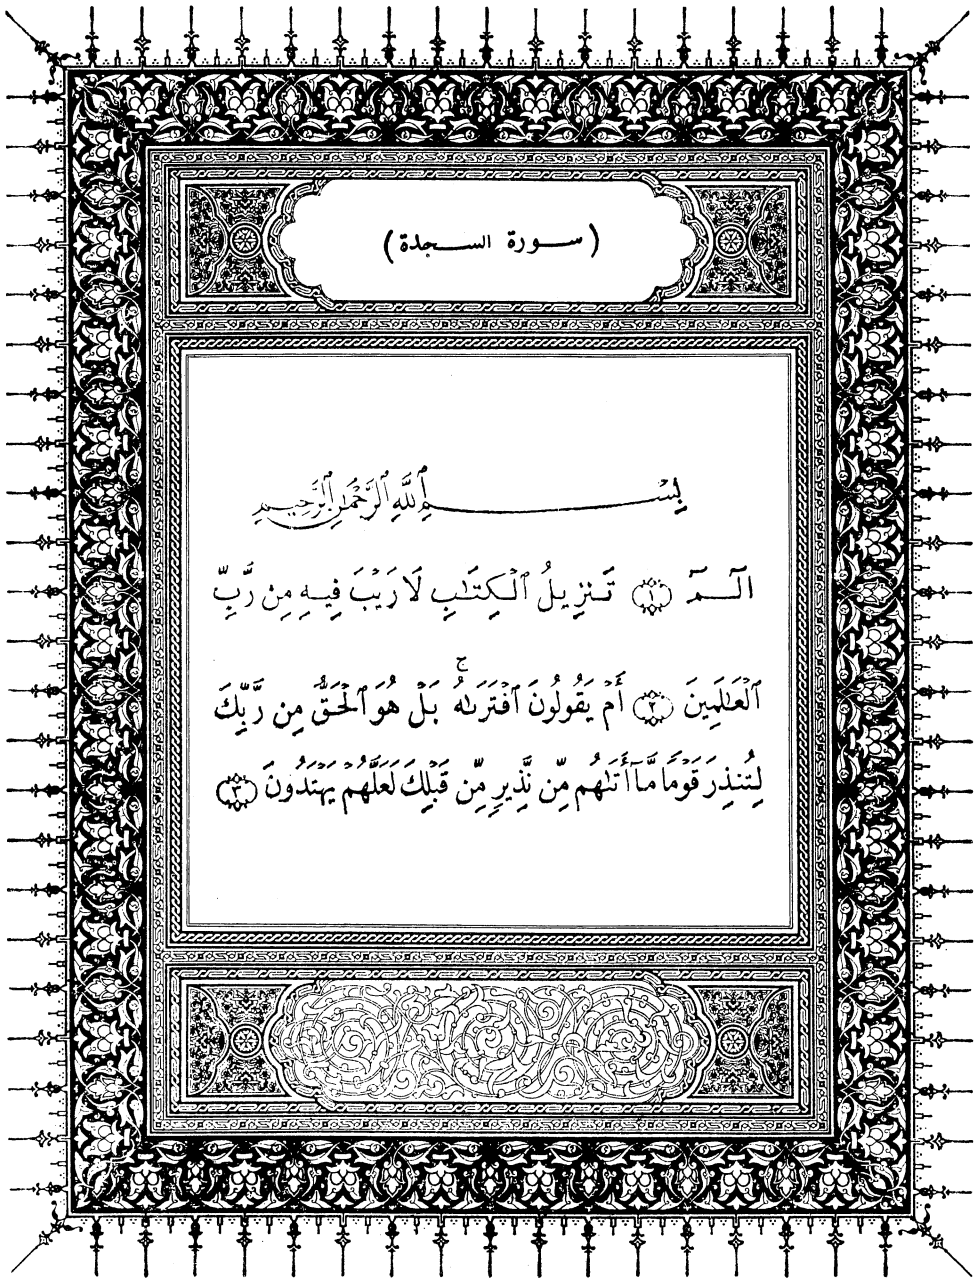 ( سورة السجدة )
بِسْمِ ٱللَّهِ ٱلرَّحْمَٰنِ ٱلرَّحِيمِ
الٓمٓ ١ تَنزِيلُ ٱلْكِتَٰبِ لَا رَيْبَ فِيهِ مِن رَّبِّ
ٱلْعَٰلَمِينَ ٢ أَمْ يَقُولُونَ ٱفْتَرَىٰهُ ۚ بَلْ هُوَ ٱلْحَقُّ مِن رَّبِّكَ
لِتُنذِرَ قَوْمًا مَّآ أَتَىٰهُم مِّن نَّذِيرٍ مِّن قَبْلِكَ لَعَلَّهُمْ يَهْتَدُونَ ٣